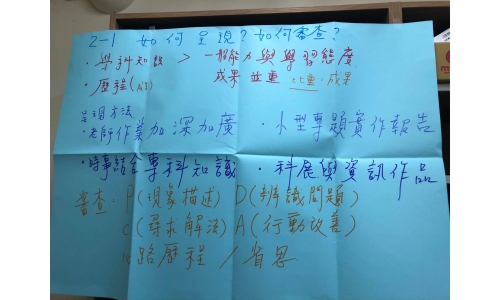 2-1 如何呈現？如何審查？
·學科知識 > 一般能力與學習態度
·歷程(AI) 成果並重 比重:成果
呈現方法
·老師作業加深加廣 ·小型專題實作報告
·時事結合專科知識 ·科展與資訊作品
審查: P(現象描述) D(辨識問題)
(尋求解法) A(行動改善)
路歷程/省思